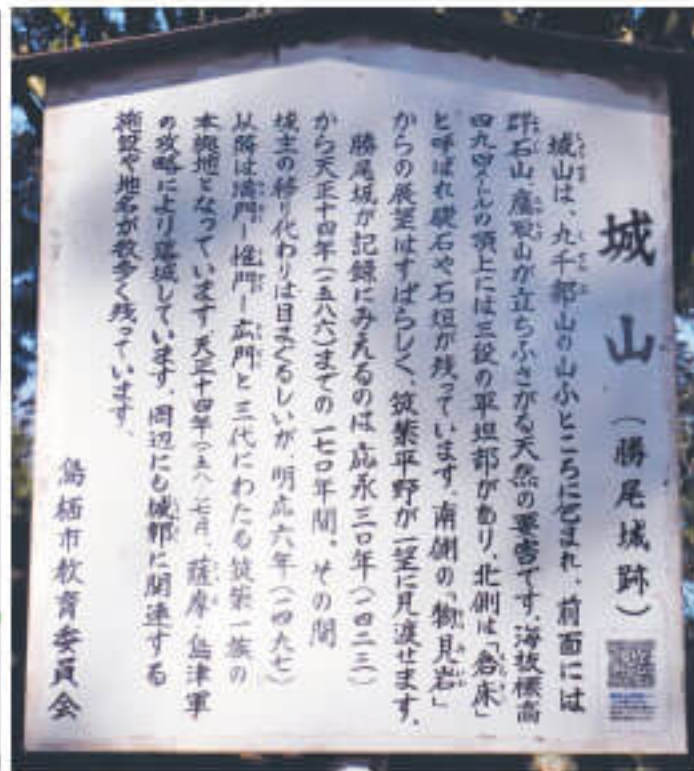 城山（勝尾城跡）
城山は、九千部山の山ふところに包まれ、前面には
群石山、鷹取山が立ちふさがる天然の要害です。海抜標高
四九四メートルの頂上には三段の平坦部があり、北側は「倉床」
と呼ばれ礎石や石垣が残っています。南側の「物見岩」
からの展望はすばらしく、筑紫平野が一望に見渡せます。
勝尾城が記録にみえるのは応永三〇年（一四二三）
から天正十四年（一五八六）までの一七〇年間。その間
城主の移り代わりは目まぐるしいが明応六年（一四九七）
以降は満門ー惟門ー広門と三代にわたる筑紫一族の
本拠地となっています。天正十四年（一五八六）七月、薩摩・島津軍
の攻略により落城しています。周辺にも城郭に関連する
施設や地名が数多く残っています。
鳥栖市教育委員会